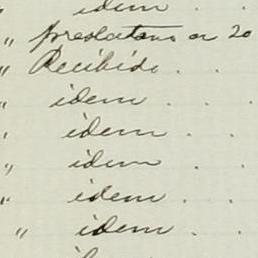 idem . .
" a 20
" Recibido . .
" idem . . .
" idem . .
" idem . .
" idem . .
" idem . .